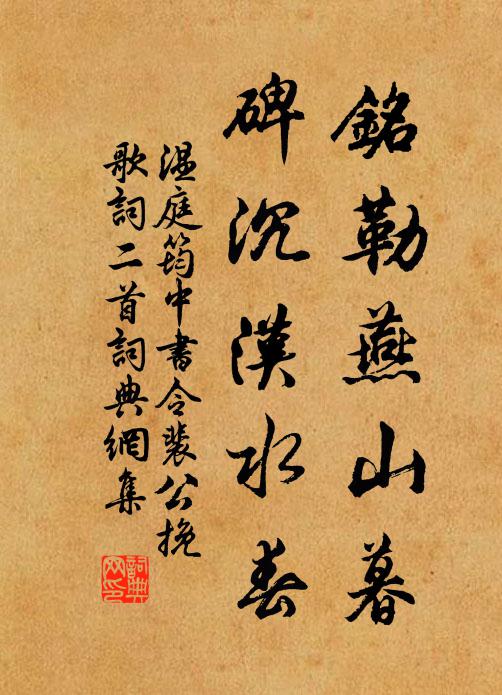 銘勒燕山暮
碑沉漢水春
溫庭筠中書令裴公挽
歌詞二首詞典網集
詞典网印